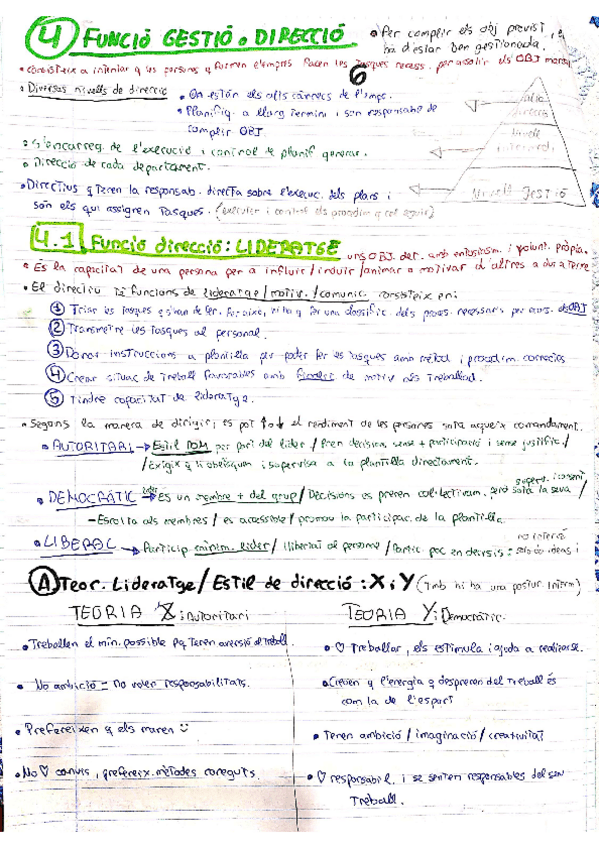 4 FUNCIÓ GESTIÓ o DIRECCIÓ
• Per complir els obj previst,
ha d'estar ben gestionada.
• Consisteix a intentar q les persones q formen l'empres facen les tasques necess. per assolir els OBJ
6
• Diversos nivells de direcció
• On están els alts càrrecs de l'emps.
• Planifiq. a llarg termini i son responsabs de
complir OBJ.
Alta
direcció
• S'encarreg. de l'execució i control de planif general.
• Direcció de cada departament.
Nivell
intermedi
• Directius q tenen la responsab. directa sobre l'execuc. dels plans i
són els qui assignen tasques. (executer i control els procedim q cal seguir)
Nivell GESTIÓ
4.1 Funció direcció: LIDERATGE
uns OBJ. det. amb entusiasm. i volunt. pròpia.
• És la capacitat de una persona per a influir/induir/animar o motivar a altres a dur a terme
• El directiu té funcions de lideratge/motiv./comunic. consisteix en:
① Triar les tasques q s'han de fer. Per això, hi ha q fer una classific. dels proces. necessaris per acons. els OBJ
② Transmetre les tasques al personal.
③ Donar instruccions a plantilla per poder fer les tasques amb mètod i procedim. correctes
④ Crear situac de treball favorables amb de motiv als treballad.
⑤ Tindre capacitat de lideratge.
• Segons la manera de dirigir, es pot ↑o↓ el rendiment de les persones sota aqueix comandament.
• AUTORITARI → Estil DOM per part del líder / Pren decisions sense + participació i sense justific. /
/ Exigix q li obeïsquen i supervisa a la plantilla directament.
• DEMOCRÀTIC → líder És un membre + del grup / Decisions es prenen col·lectivam. però sota la seva /
superv. i consenti
- Escolta als membres / es accessible / promou la participac. de la plantilla.
• LIBERAL → Particip mínim. líder / llibertat al personal / Partic poc en decisis:
no interfé
A Teor. Lideratge / Estil de direcció: X i Y (Tmb hi ha una postur. interm)
TEORIA X; Autoritari
TEORIA Y; Democràtic
• Treballen el mín. possible pq tenen aversió al treball.
• ♡ Treballar, els estimula i ajuda a realitzarse.
• No ambició = no volen responsabilitats.
• Creuen q l'energia q desprenen del treball és
com la de l'esport
• Prefereixen q els manen
• Tenen ambició / imaginació / creativitat
• No ♡ canvis, prefereix. mètodes coneguts.
• ♡ responsabil. i se senten responsables del seu
treball.